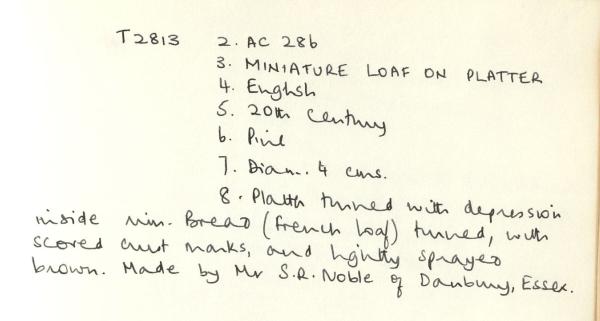 T2813 2. AC 28b
3. MINIATURE LOAF ON PLATTER
4. English
5. 20th Century
6. Pine
7. Diam. 4 cms.
8. Platter turned with depression
inside rim. Bread (french loaf) turned, with
scored crust marks, and lightly sprayed
brown. Made by Mr S.R. Noble of Danbury, Essex.